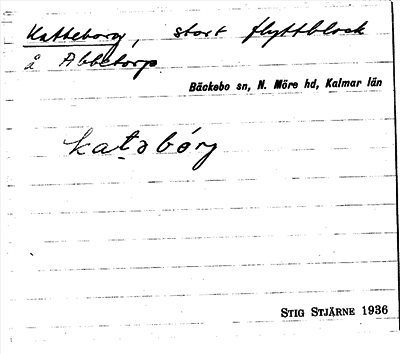 Katteborg, stort flyttblock
å Abbetorp.
Bäckebo sn, N. Möre hd, Kalmar län
katəbórj
STIG STJÄRNE 1936